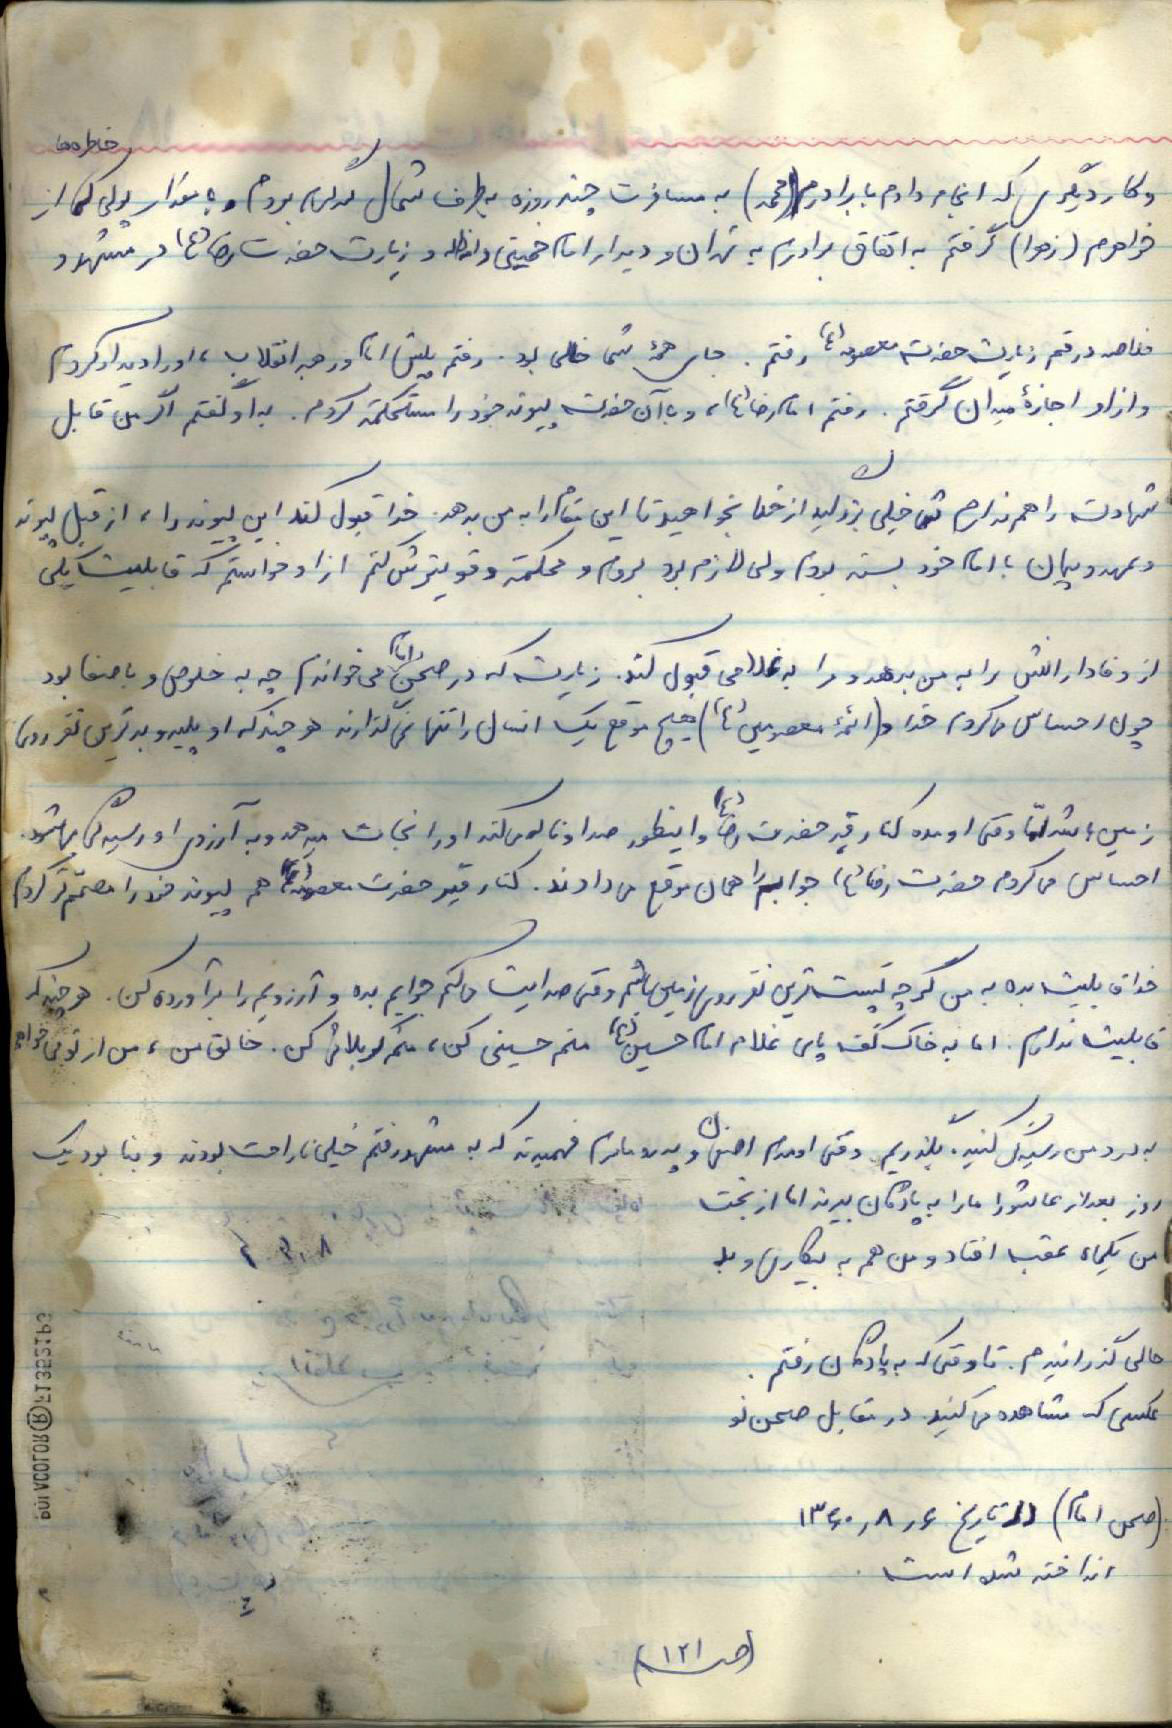 خاطره‌ها
و کار دیگری که انجام دادم با برادرم (محمد) به مسافرت چند روزه به طرف شمال کرده بودم و با مقدار پولی که از
خواهرم (زهرا) گرفتم به اتفاق برادرم به تهران و دیدار امام خمینی و زیارت حضرت رضا (ع) در مشهد و
خلاصه در قم زیارت حضرت معصومه (ع) رفتم. جای همهٔ شما خالی بود. رفتم پیش امام و رهبر انقلاب، او را دیدار کردم
و از او اجازهٔ میدان گرفتم. رفتم امام رضا (ع)، و با آن حضرت پیوند خود را مستحکمتر کردم. به او گفتم اگر من قابل
شهادت را هم ندارم شما خیلی بزرگید از خدا بخواهید تا این مقام را به من بدهد. خدا قبول کند این پیوند را، از قبل پیوند
و عهد و پیمان با امام خود بسته بودم ولی لازم بود بروم و محکمتر و قویترش کنم از او خواستم که قابلیت یکی
از وفادارانش را به من بدهد و مرا به غلامی قبول کند. زیارت که در صحن امام می‌خواندم چه به خلوص و با صفا بود
چون احساس می‌کردم خدا و (ائمهٔ معصومین (ع)) هیچ موقع یک انسان را تنها نمی‌گذارند هر چند که او پلید و بدترین نفر روی
زمین باشد امّا وقتی اومده کنار قبر حضرت رضا (ع) و اینطور صدا و ناله می‌کند او را نجات می‌دهد و به آرزوی او رسیدگی می‌شود.
احساس می‌کردم حضرت رضا (ع) جوابم را همان موقع می‌دادند. کنار قبر حضرت معصومه (ع) هم پیوند خود را مصمّم‌تر کردم
خدا قابلیت بده به من گرچه پست‌ترین نفر روی زمین باشم وقتی صدایت می‌کنم جوابم بده و آرزویم را برآورده کن. هر چند که
قابلیت ندارم. اما به خاک کف پای غلام امام حسین (ع) منم حسینی کن، منم کربلائی کن. خالق من، من از تو می‌خواهم
به درد من رسیدگی کنید. بگذریم وقتی اومدم اصفهان و پدر و مادرم فهمیدند که به مشهد رفتم خیلی ناراحت بودند و بنا بود یک
روز بعد از عاشورا ما را به پادگان ببرند اما از بخت
من یکماه عقب افتاد و من هم به بیکاری و بد
حالی گذراندم. تا وقتی که به پادگان رفتم.
عکسی که مشاهده می‌کنید در مقابل صحن نو
(صحن امام) در تاریخ ۱۳۶۰٫۸٫۶
انداخته شده است.
(صـ ۱۲۱)
POLACOLOR ® 7135821P3